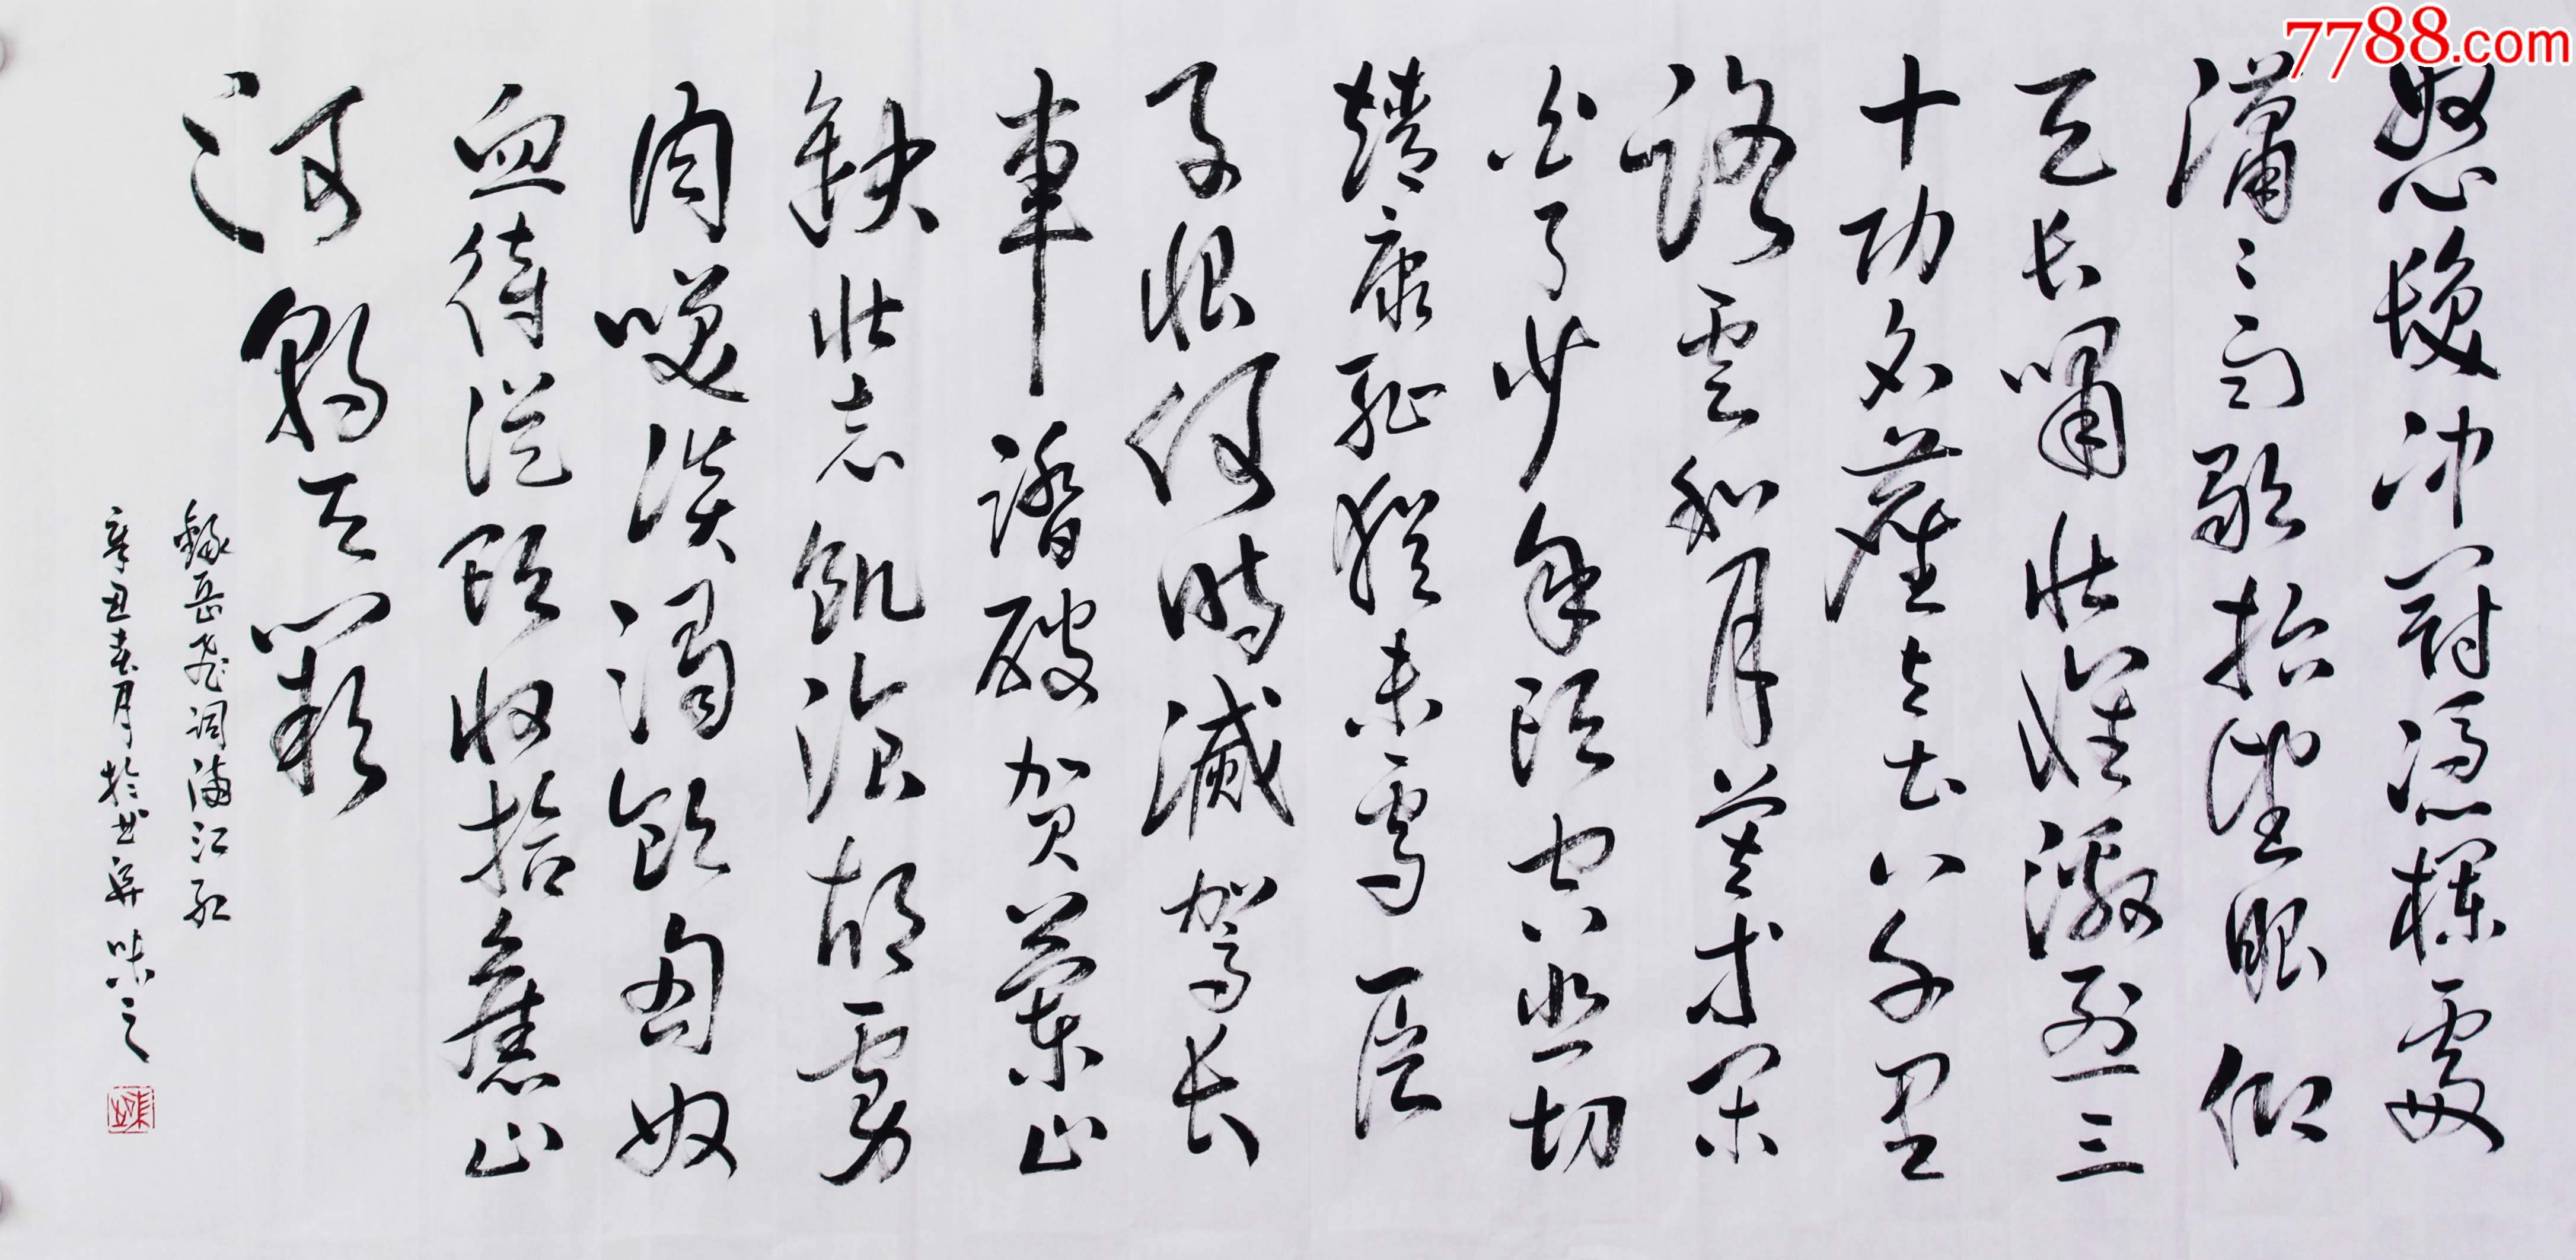 7788.com
怒髮冲冠憑欄處
瀟〻雨歇抬望眼仰
天长嘯壯懷激烈三
十功名塵与土八千里
路雲和月莫等閑
白了少年頭空悲切
靖康耻猶未雪臣
子恨何時滅駕长
車踏破贺蘭山
缺壯志飢飡胡虜
肉笑談渴飲匈奴
血待從頭收拾舊山
河朝天闕
錄岳飛詞滿江紅
辛丑春月於
味之